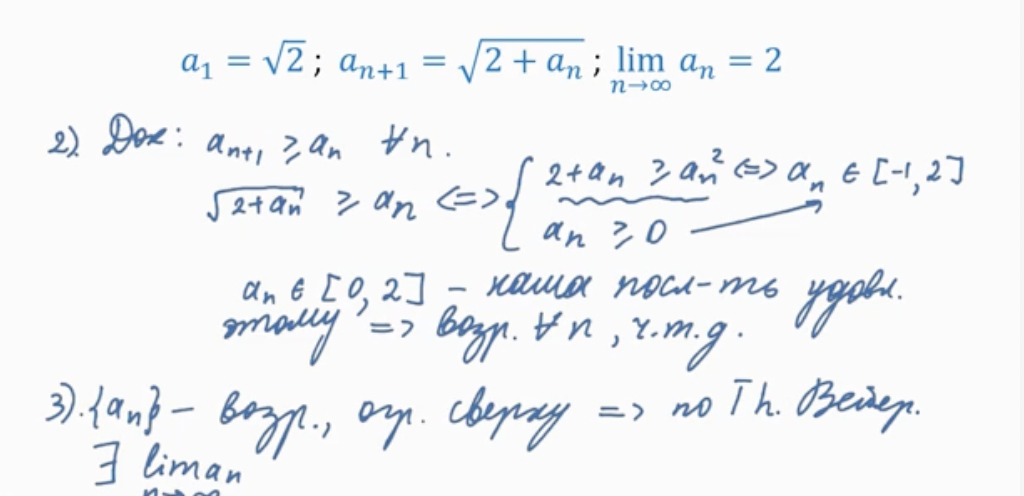 a₁ = √2 ; aₙ₊₁ = √(2 + aₙ) ; lim n→∞ aₙ = 2
2) Док: aₙ₊₁ ⩾ aₙ ∀n.
√(2+aₙ) ⩾ aₙ <=> { 2+aₙ ⩾ aₙ² <=> aₙ ∈ [-1,2]
aₙ ⩾ 0
aₙ ∈ [0,2] – наша посл-ть удовл.
этому => возр. ∀n, ч.т.д.
3). {aₙ} – возр., огр. сверху => по Th. Вейер.
∃ lim aₙ
n→∞